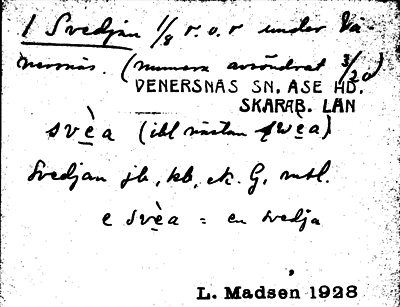 1 Svedjan 1/8 r. o. r under Vä-
nersnäs. (numera avsöndrat 3/20)
VENERSNÄS SN. ÅSE HD.
SKARAB. LÄN
svè̱a (ibl nästan swè̱a)
Svedjan jb, kb, ek. G, mtl.
e svè̱a = en svedja
L. Madsen 1928